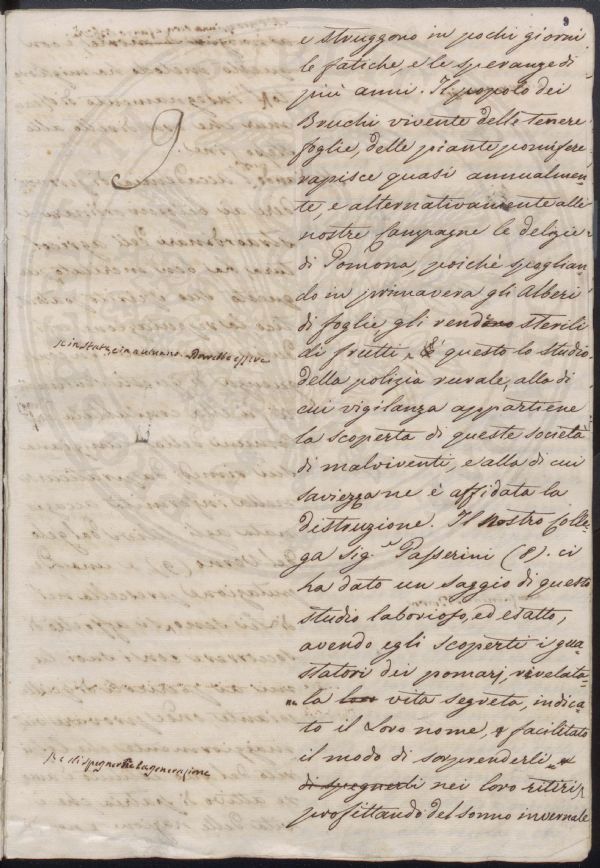 9
9.
e struggono in pochi giorni
le fatiche, e le speranze di
più anni. Il popolo dei
Bruchi vivente delle tenere
foglie, delle piante pomifere
rapisce quasi annualmen=
te, e alternativamente alle
nostre Campagne le delizie
di Pomona, poichè spoglian=
do in primavera gli Alberi
di foglie gli rendono sterili
di frutti. È questo lo studio
della polizia rurale, alla di
cui vigilanza appartiene
la scoperta di queste società
di malviventi, e alla di cui
saviezza ne è affidata la
distruzione. Il nostro Colle=
ga Sig.r Passerini (8). ci
ha dato un saggio di questo
studio laborioso, ed esatto,
avendo egli scoperti i gua=
statori dei pomarj, rivelata
la loro vita segreta, indica=
to il Loro nome, e facilitato
il modo di sorprenderli, e
di spegnerli nei loro ritiri,
profittando del sonno invernale
Dovrebbe essere
e di spegnerne la generazione